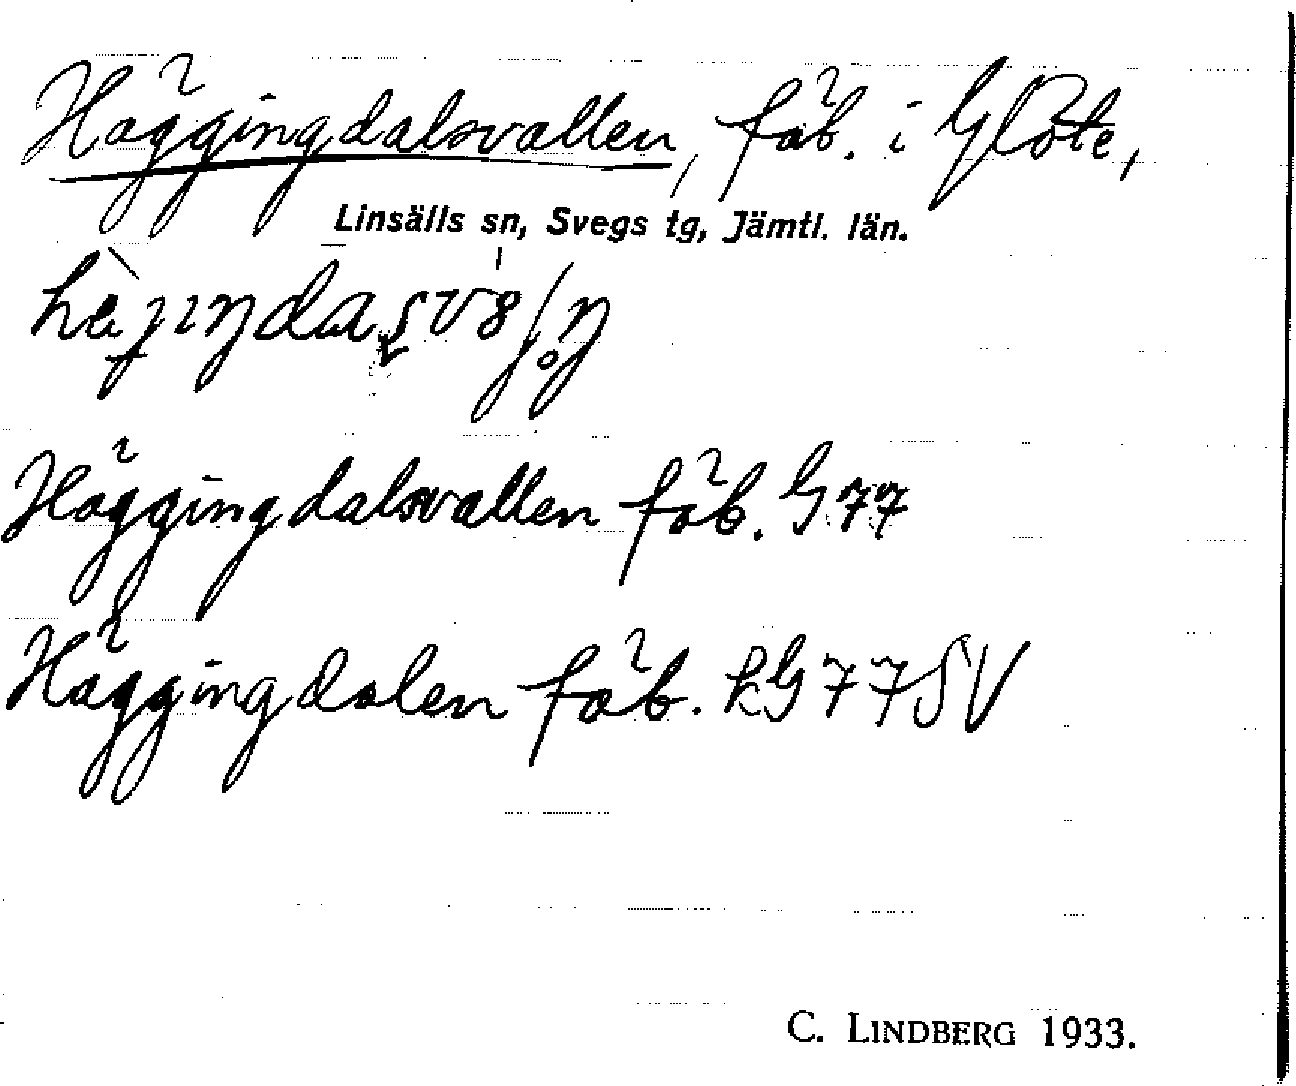 Häggingdalsvallen, fäb. i Glöte,
Linsälls sn, Svegs tg, Jämtl. län.
Häggingdalsvallen fäb. G 77
Häggingdalen fäb. kG 77 SV
C. LINDBERG 1933.